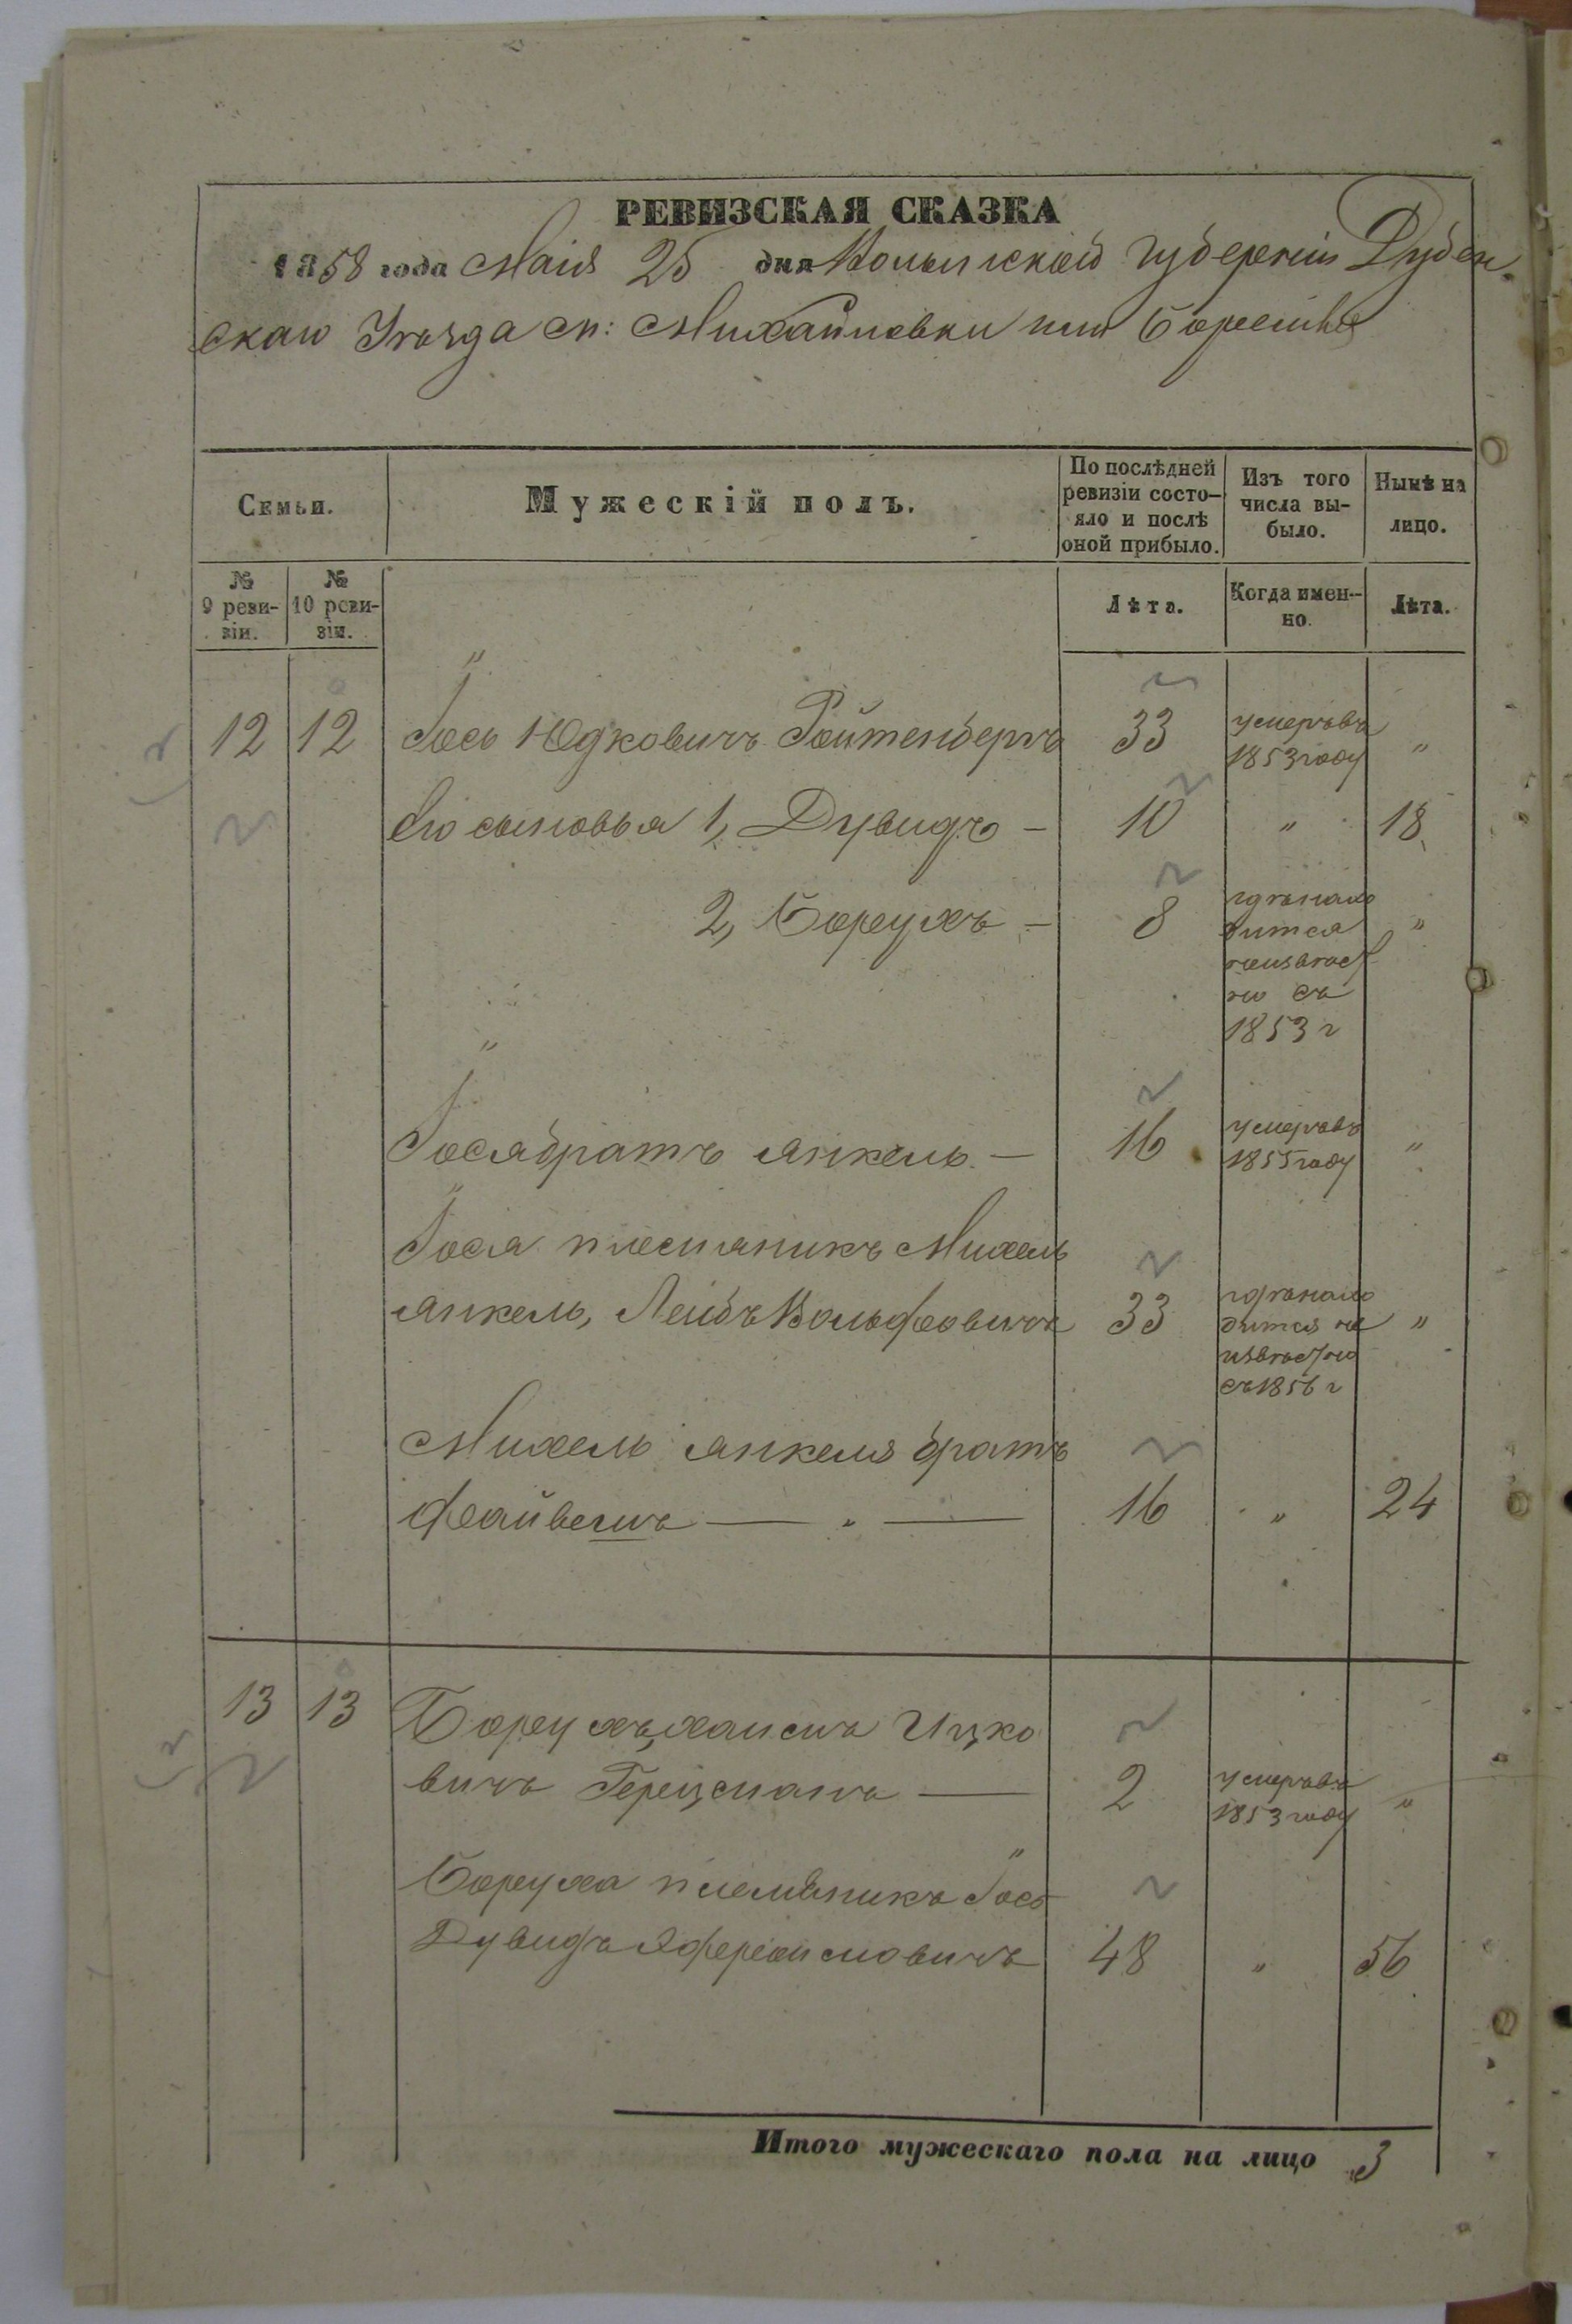 РЕВИЗСКАЯ СКАЗКА
1858 года Маія 25 дня Волынской губерніи Дубен-
скаго Уѣзда м: Михайловки или Боремля
Семьи.
Мужескій полъ.
По послѣдней ревизіи состо-
яло и послѣ оной прибыло.
Изъ того числа вы-
было.
Нынѣ на лицо.
№ 9 реви-
зіи.
№ 10 реви-
зіи.
Лѣта.
Когда имен-
но.
Лѣта.
12 12 Іось Юдковичъ Ройтенбергъ 33 умеръ въ 1853 году "
Его сыновья 1, Дувидъ — 10 " 18
2, Борухъ — 8 гдѣ нахо
дится
неизвѣст
но съ
1853 г "
Іося братъ Янкель — 16 умеръ въ 1855 году "
Іося племяникъ Михель
Янкель, Лейбъ Вольфовичъ 33 гдѣ нахо
дится не
извѣстно
съ 1856 г "
Михель Янкеля братъ
Файвель — " — 16 " 24
13 13 Борухъ, Хаимъ Ицко
вичъ Герецманъ — 2 умеръ въ 1853 году "
Боруха племяникъ Іось
Дувидъ 48 " 56
Итого мужескаго пола на лицо 3